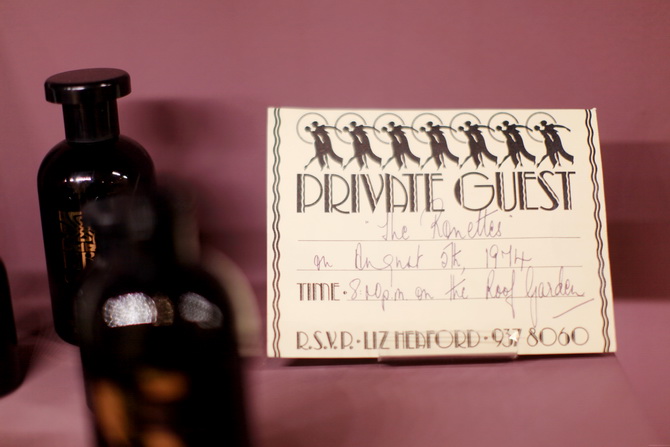 PRIVATE GUEST
"The Ronettes"
on August 5th, 1974
TIME · 8.00pm on the Roof Garden
R.S.V.P. · LIZ HEAFORD · 937 8060